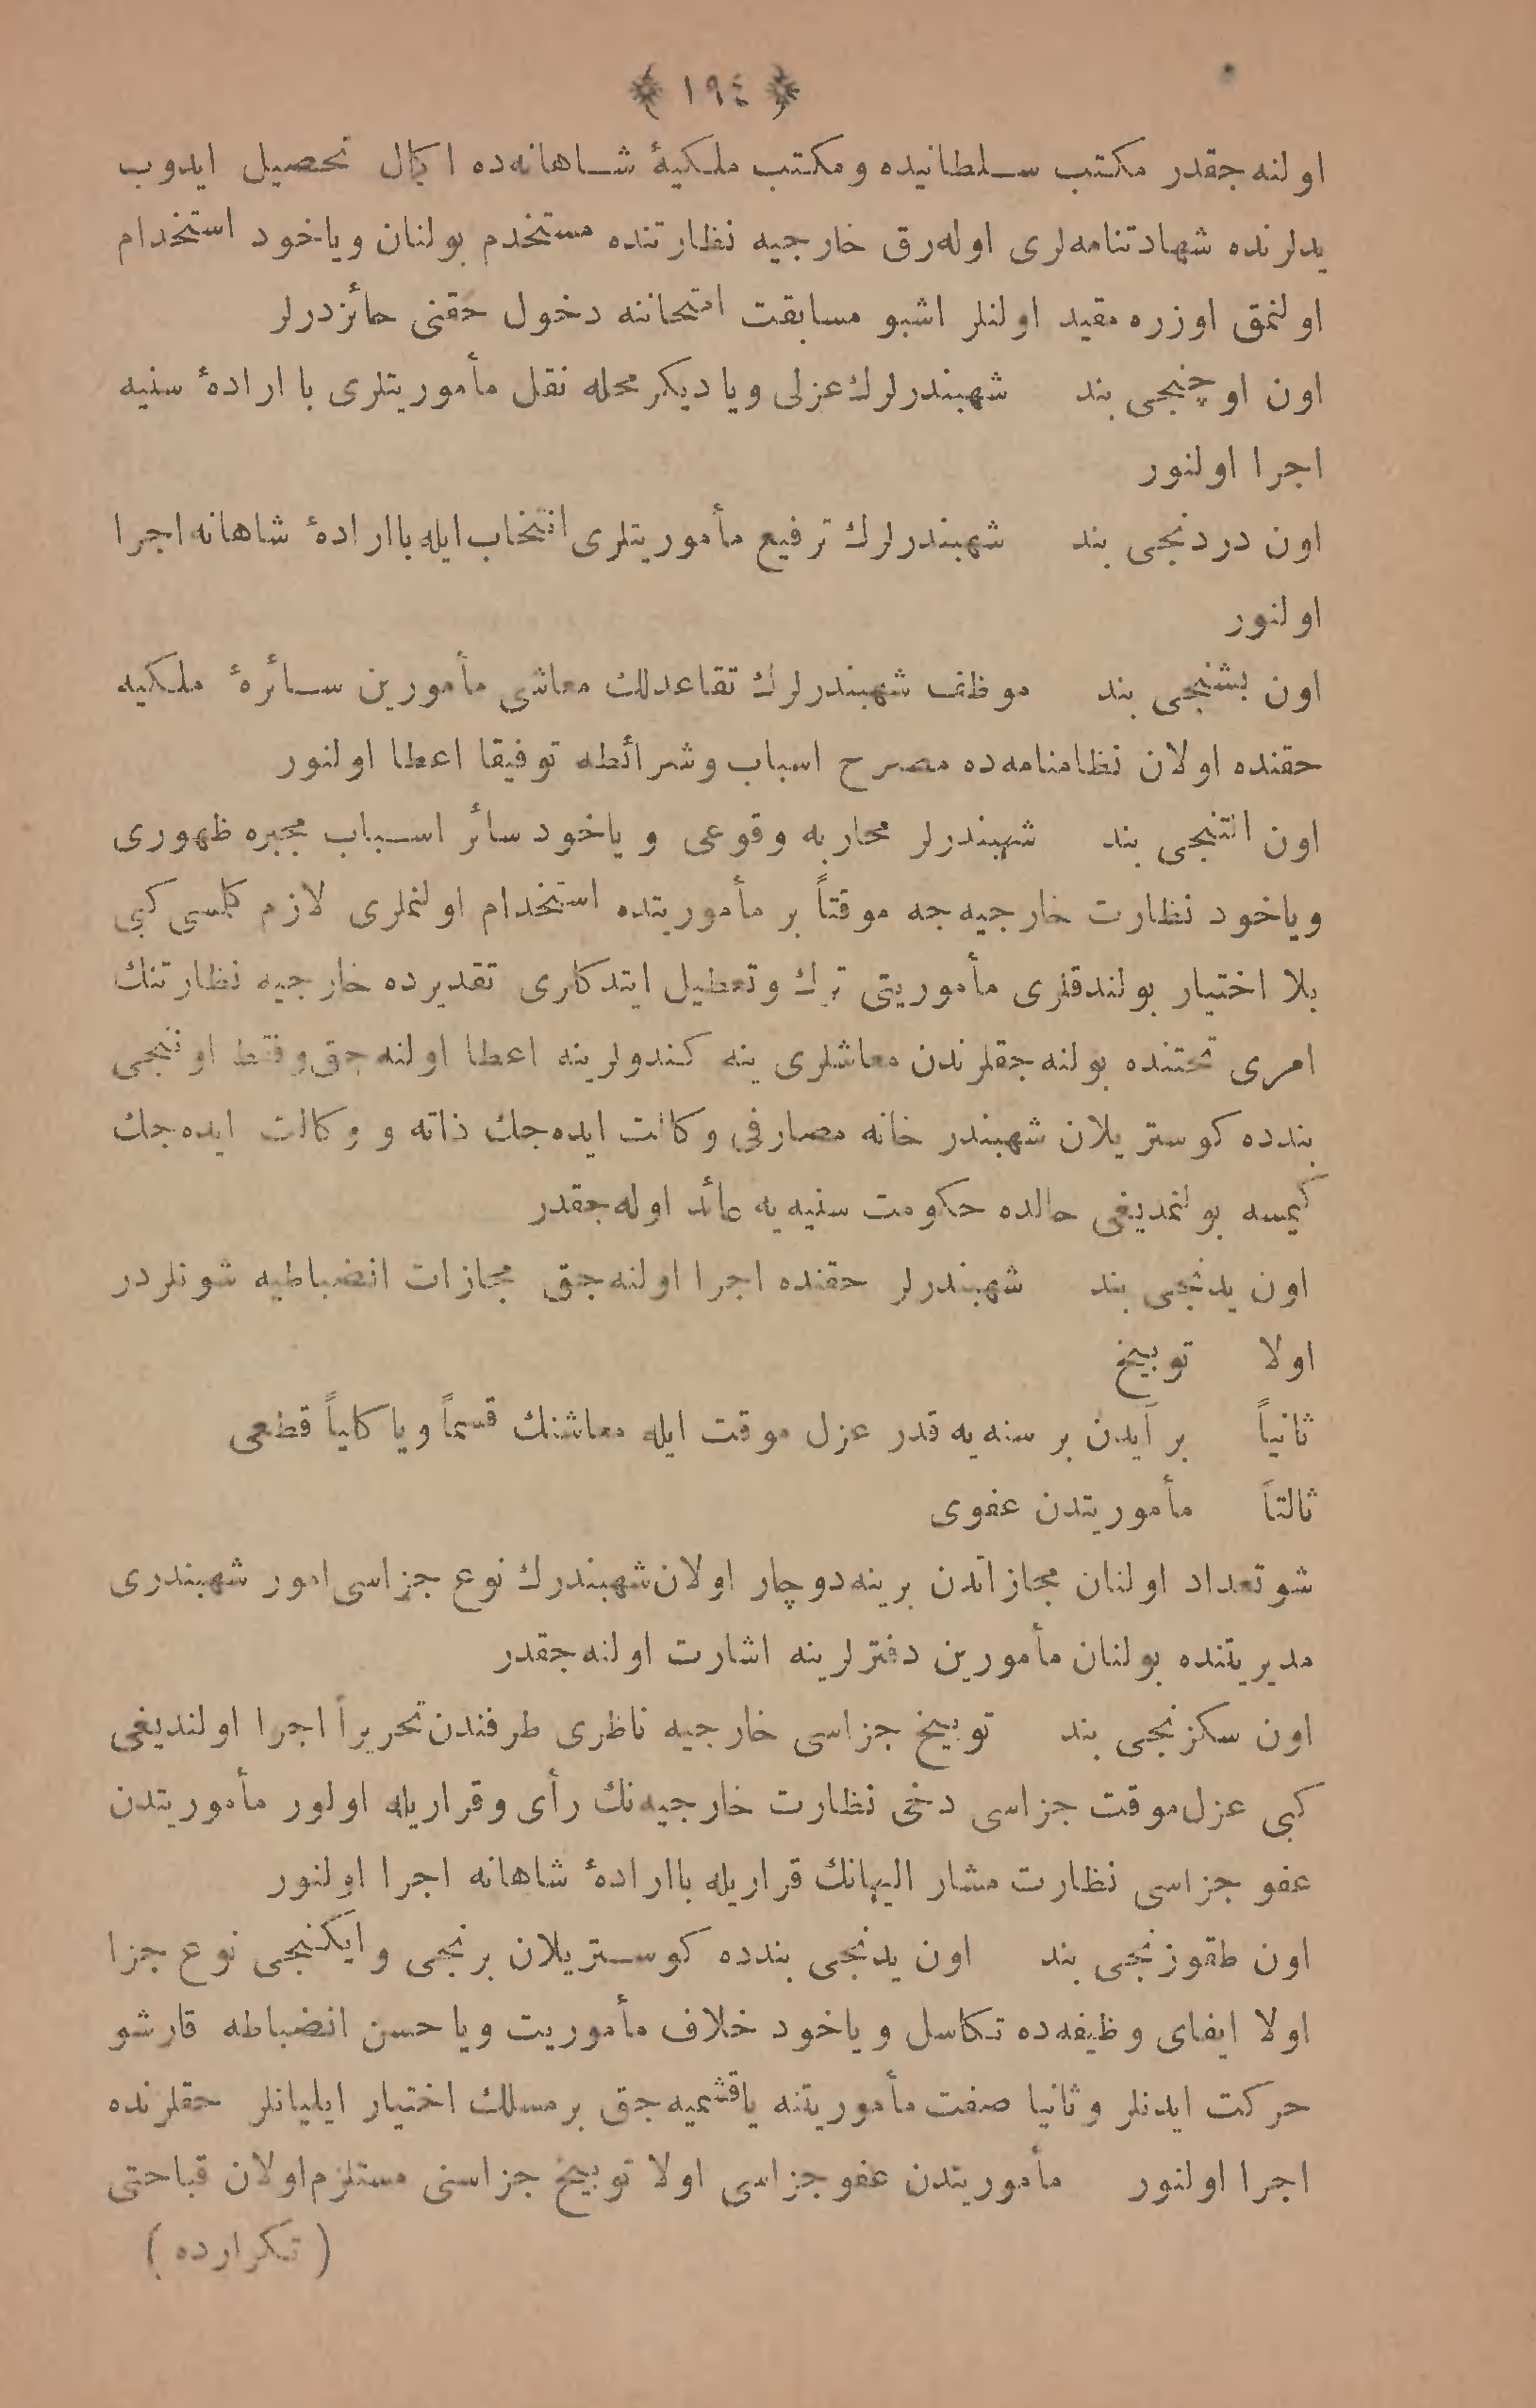 ﴿ ١٩٤ ﴾
اولنه‌جقدر مكتب سلطانیده ومكتب ملكیهٔ شاهانه‌ده اكمال تحصیل ایدوب
یدلرنده شهادتنامه‌لری اوله‌رق خارجیه نظارتنده مستخدم بولنان ویاخود استخدام
اولنمق اوزره مقید اولنلر اشبو مسابقت امتحاننه دخول حقنی حائزدرلر
اون اوچنجی بند شهبندرلرك عزلی ویا دیكر محله نقل مأموریتلری با ارادهٔ سنیه
اجرا اولنور
اون دردنجی بند شهبندرلرك ترفیع مأموریتلری انتخاب ایله باارادهٔ شاهانه اجرا
اولنور
اون بشنجی بند موظف شهبندرلرك تقاعدلك معاشی مأمورین سائرهٔ ملكیه
حقنده اولان نظامنامه‌ده مصرح اسباب وشرائطه توفیقا اعطا اولنور
اون التنجی بند شهبندرلر محاربه وقوعی ویاخود سائر اسباب مجبره ظهوری
ویاخود نظارت خارجیه‌جه موقتاً بر مأموریتده استخدام اولنملری لازم كلمسی كبی
بلا اختیار بولندقلری مأموریتی ترك وتعطیل ایتدكلری تقدیرده خارجیه نظارتنك
امری تحتنده بولنه‌جقلرندن معاشلری ینه كندولرینه اعطا اولنه‌جق وفقط اوننجی
بندده كوستریلان شهبندرخانه مصارفی وكالت ایده‌جك ذاته و وكالت ایده‌جك
كیمسه بولنمدیغی حالده حكومت سنیه‌یه عائد اوله‌جقدر
اون یدنجی بند شهبندرلر حقنده اجرا اولنه‌جق مجازات انضباطیه شونلردر
اولا توبیخ
ثانیاً بر آیدن بر سنه‌یه قدر عزل موقت ایله معاشنك قسماً ویا كلیاً قطعی
ثالثاً مأموریتدن عفوی
شو تعداد اولنان مجازاتدن برینه دوچار اولان شهبندرك نوع جزاسی امور شهبندری
مدیریتنده بولنان مأمورین دفترلرینه اشارت اولنه‌جقدر
اون سكزنجی بند توبیخ جزاسی خارجیه ناظری طرفندن تحریراً اجرا اولندیغی
كبی عزل موقت جزاسی دخی نظارت خارجیه‌نك رأی وقراریله اولور مأموریتدن
عفو جزاسی نظارت مشار الیهانك قراریله باارادهٔ شاهانه اجرا اولنور
اون طقوزنجی بند اون یدنجی بندده كوستریلان برنجی وایكنجی نوع جزا
اولا ایفای وظیفه‌ده تكاسل ویاخود خلاف مأموریت ویا حسن انضباطه قارشو
حركت ایدنلر وثانیا صفت مأموریتنه یاقشمیه‌جق بر مسلك اختیار ایلیانلر حقلرنده
اجرا اولنور مأموریتدن عفو جزاسی اولا توبیخ جزاسنی مستلزم اولان قباحتی
( تكرارده )